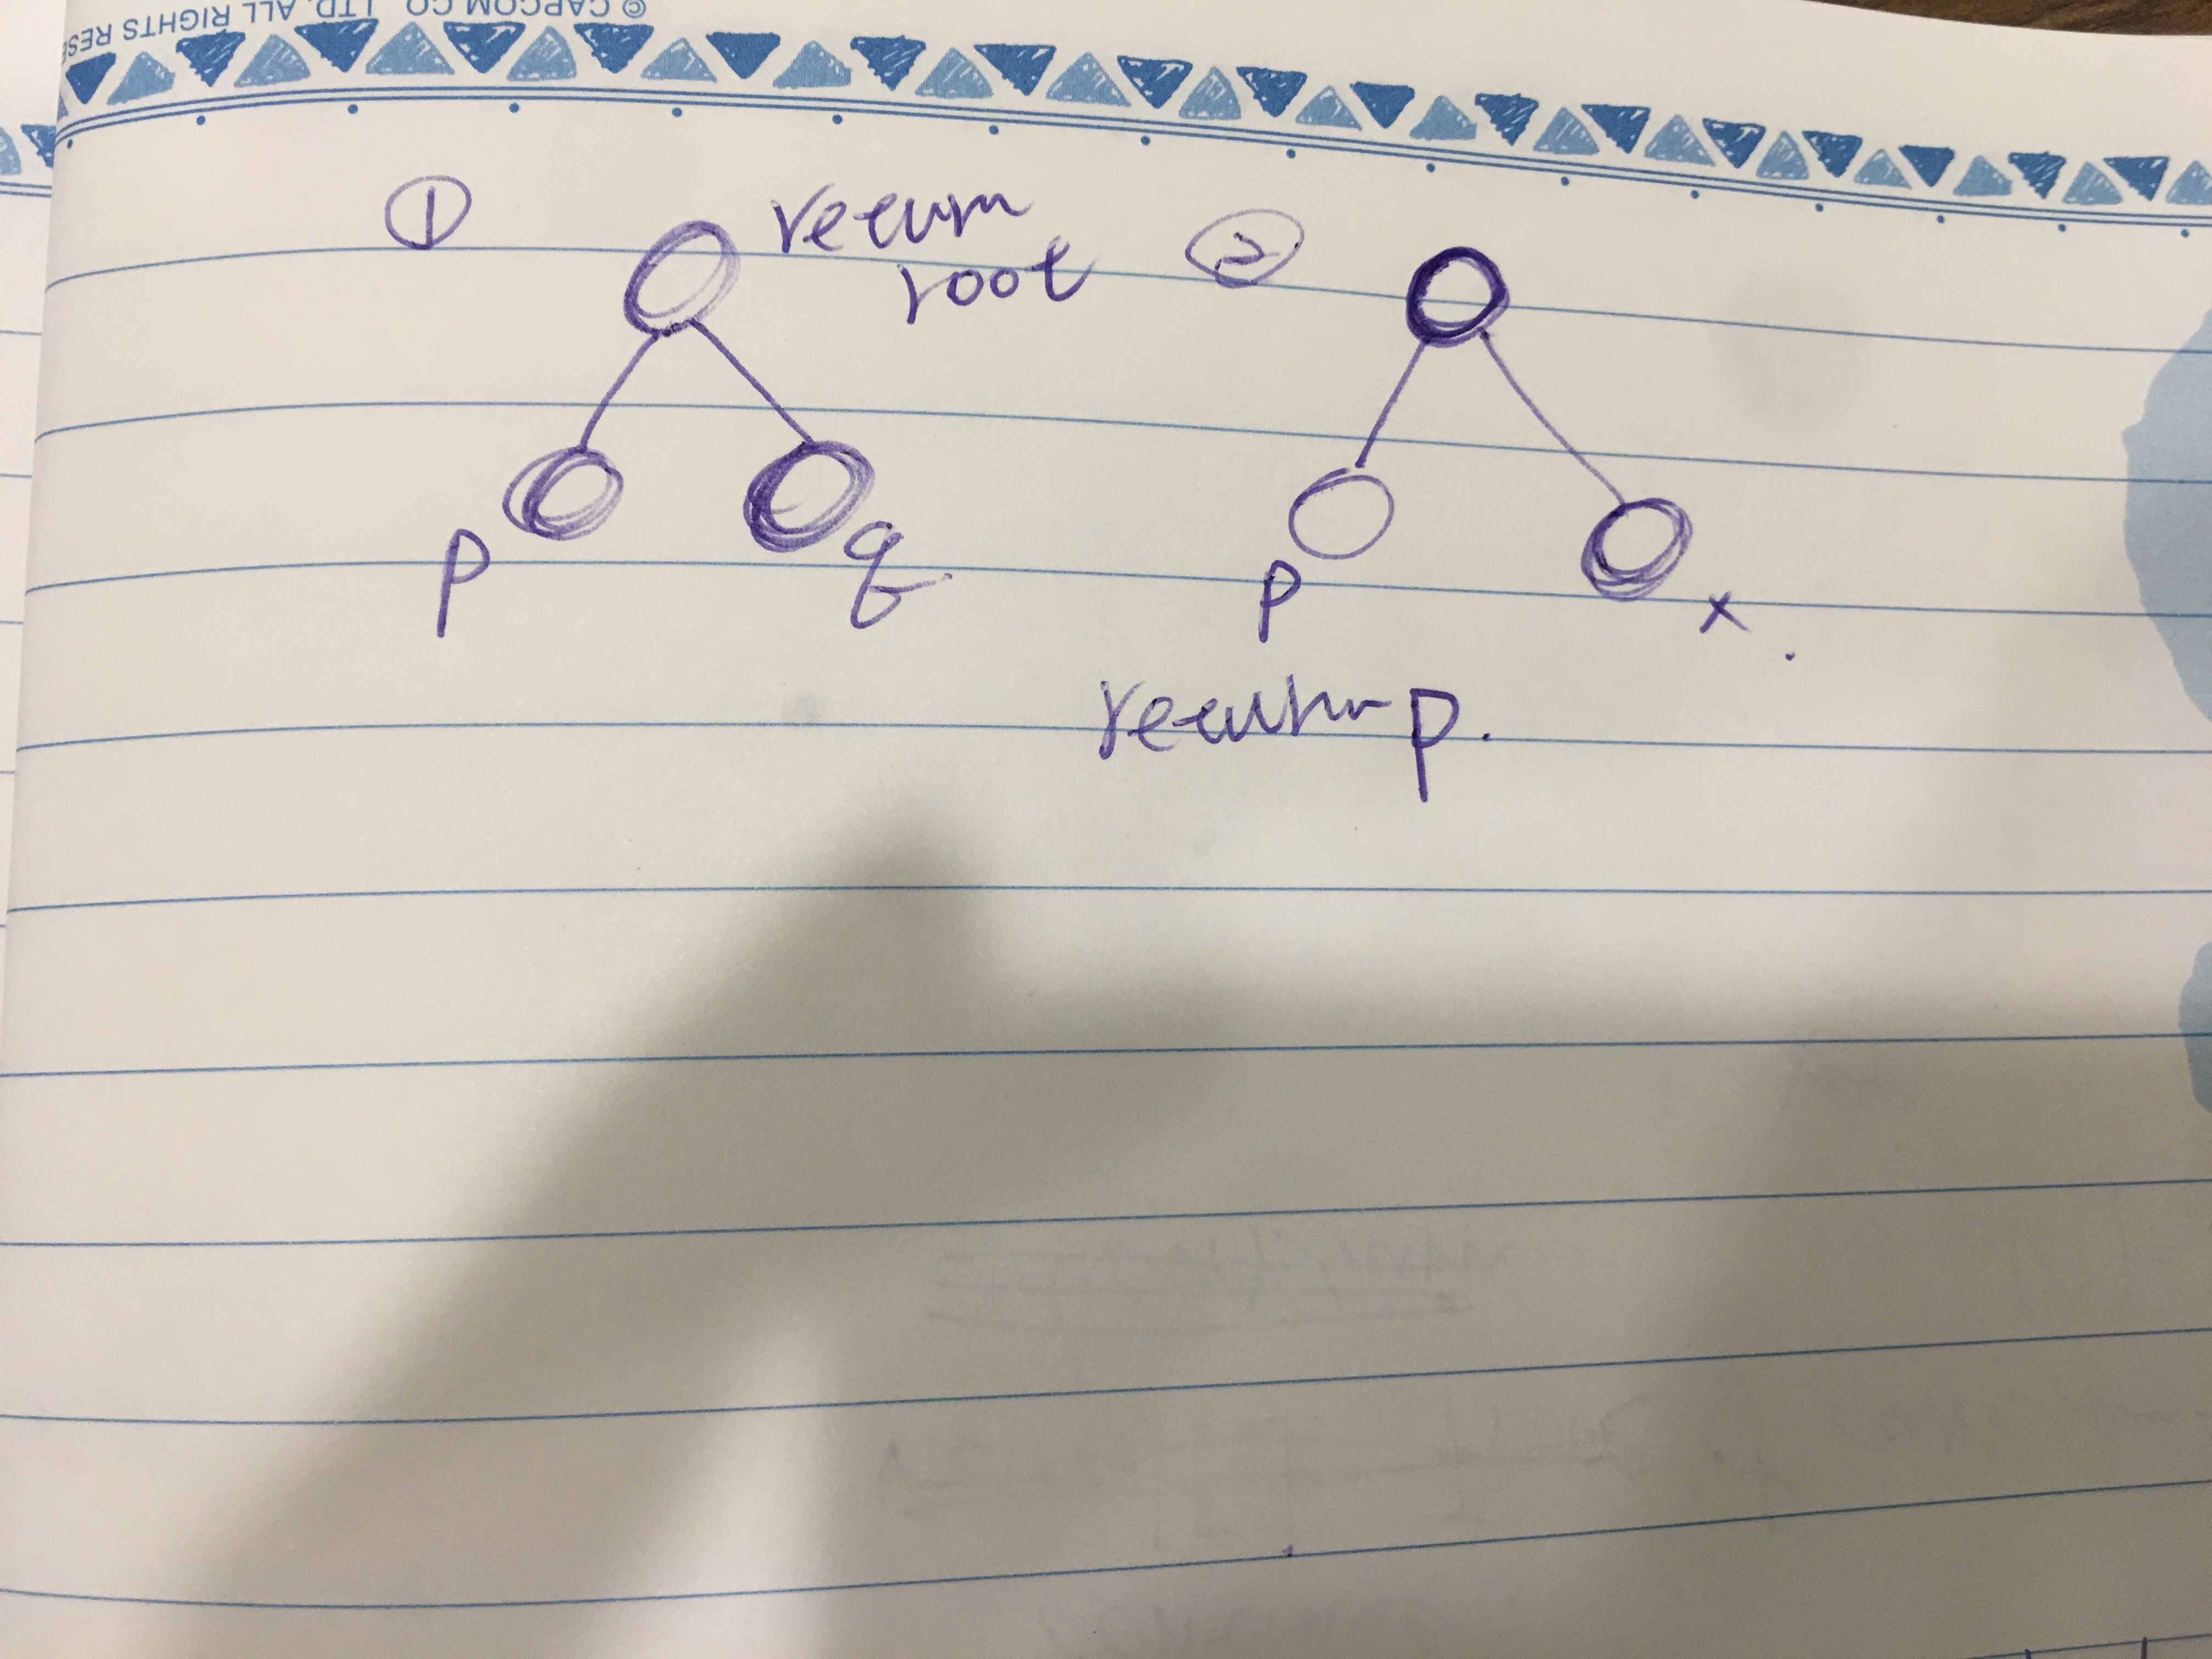 © CAPCOM CO., LTD. ALL RIGHTS RESE
①
return
root
②
p
q
p
x
return p.